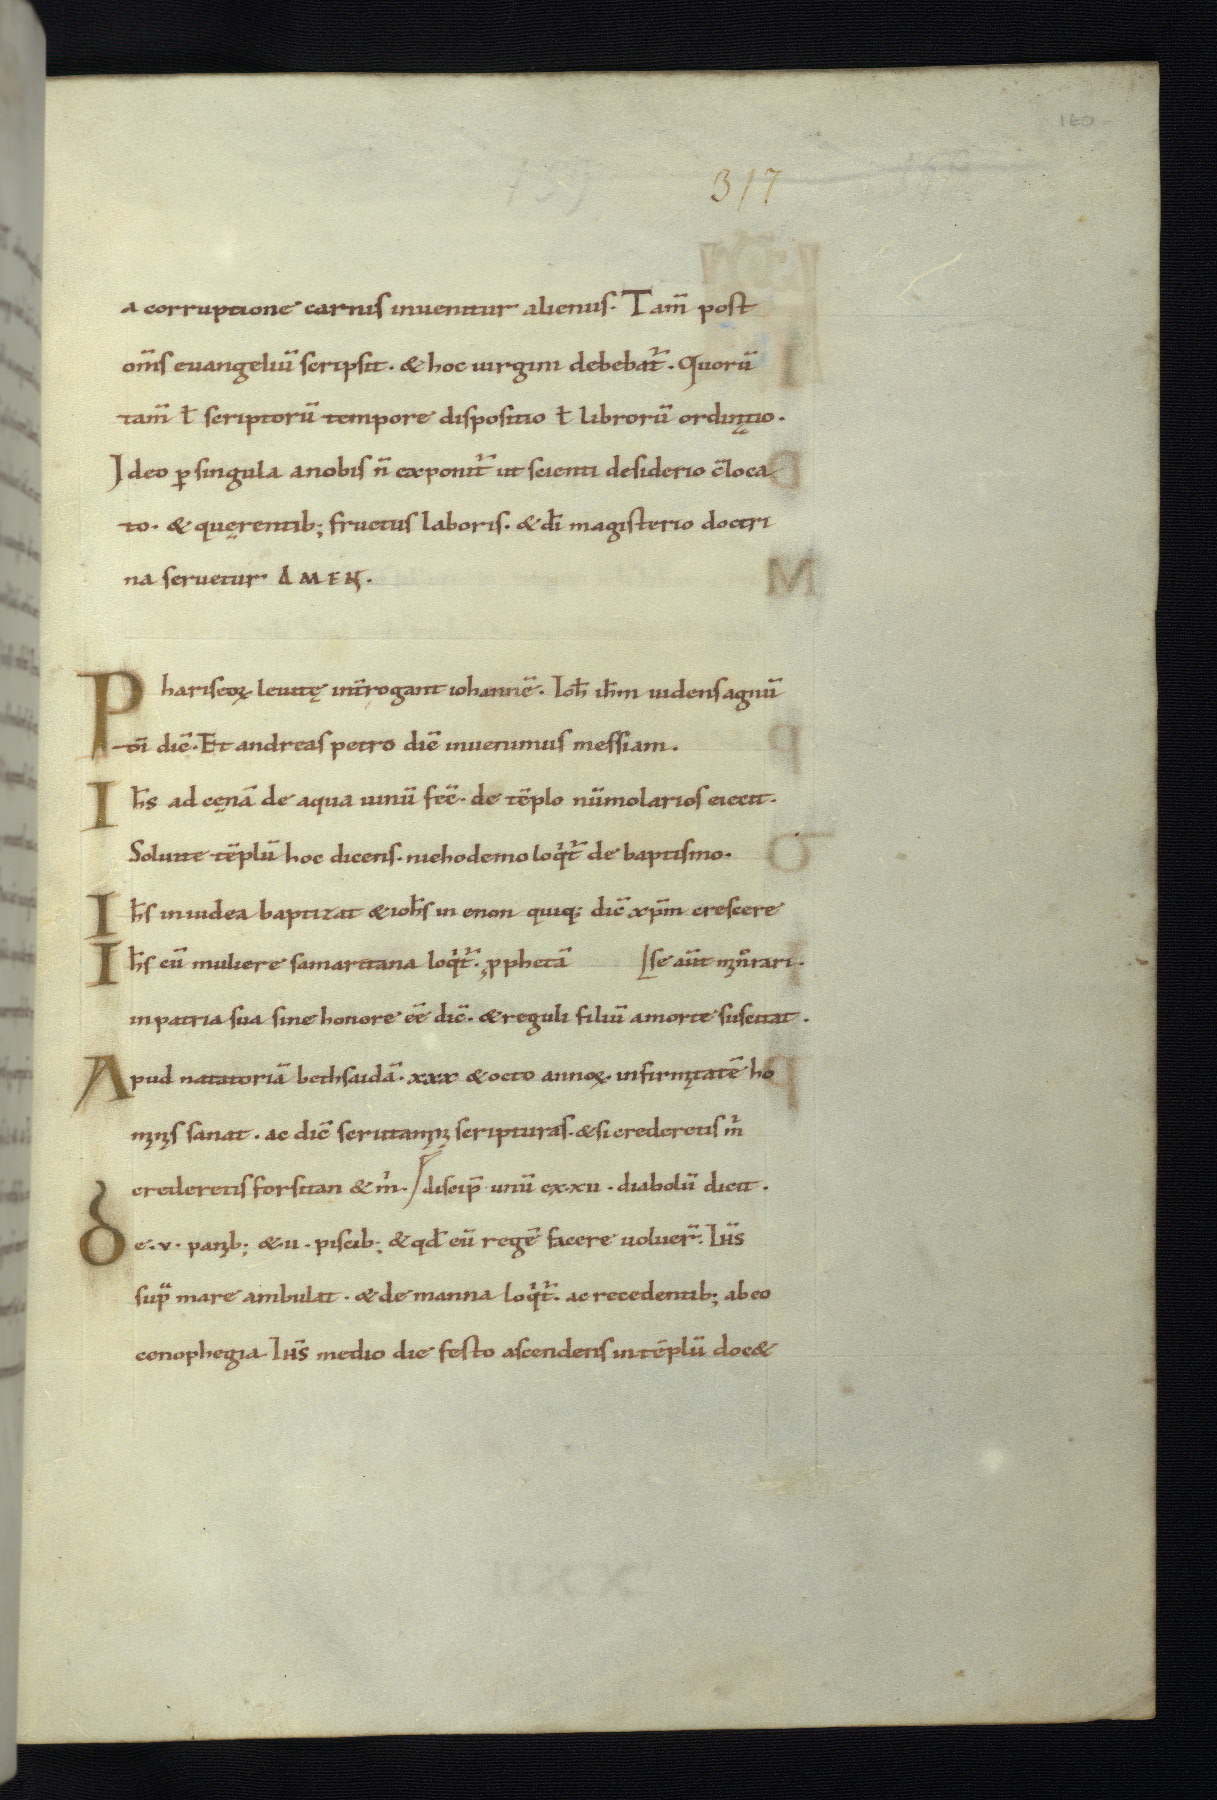 160
317
a corruptione carnis inuenitur alienus. Tam̄ post
om̄s euangeliū scripsit. & hoc uirgini debebat᷑. Quorū
tam̄ ł scriptorū tempore dispositio ł librorū ordinatio.
Ideo ꝑ singula a nobis n̄ exponit᷑ ut scienti desiderio c̄loca
to. & quęrentib; fructus laboris. & dī magisterio doctri
na seruetur AMEN.
Phariseoꝝ leuitę int̄rogant iohannē. Ioh̄ ih̄m uidens agnū
dī dic̄. Et andreas petro dic̄ inuenimus messiam.
Ih̄s ad cęnā de aqua uinū fec̄. de tēplo nūmolarios eiecit.
Soluite tēplū hoc dicens. nichodemo loq̇t᷑ de baptismo.
Ih̄s in iudea baptizat & ioh̄s in enon quiq; dic̄ xp̄m crescere
Ih̄s cū muliere samaritana loq̇t᷑. ꝓphetā se aūt minorari.
in patria sua sine honore eē dic̄. & reguli filiū a morte suscitat.
Apud natatoriā bethsaidā. xxx & octo annoꝝ infirmitatē ho
minis sanat. ac dic̄ scrutamini scripturas. & si crederetis m̊
crederetis forsitan & m̊. discip̄ unū ex xii. diabolū dicit.
de. v. panib; & .ii. piscib; & qđ eū regē facere uoluer̄. Ihs̄
sup̄ mare ambulat. & de manna loq̇t᷑. ac recedentib; ab eo
cenophegia. Ihs̄ medio die festo ascendens in tēplū doc&